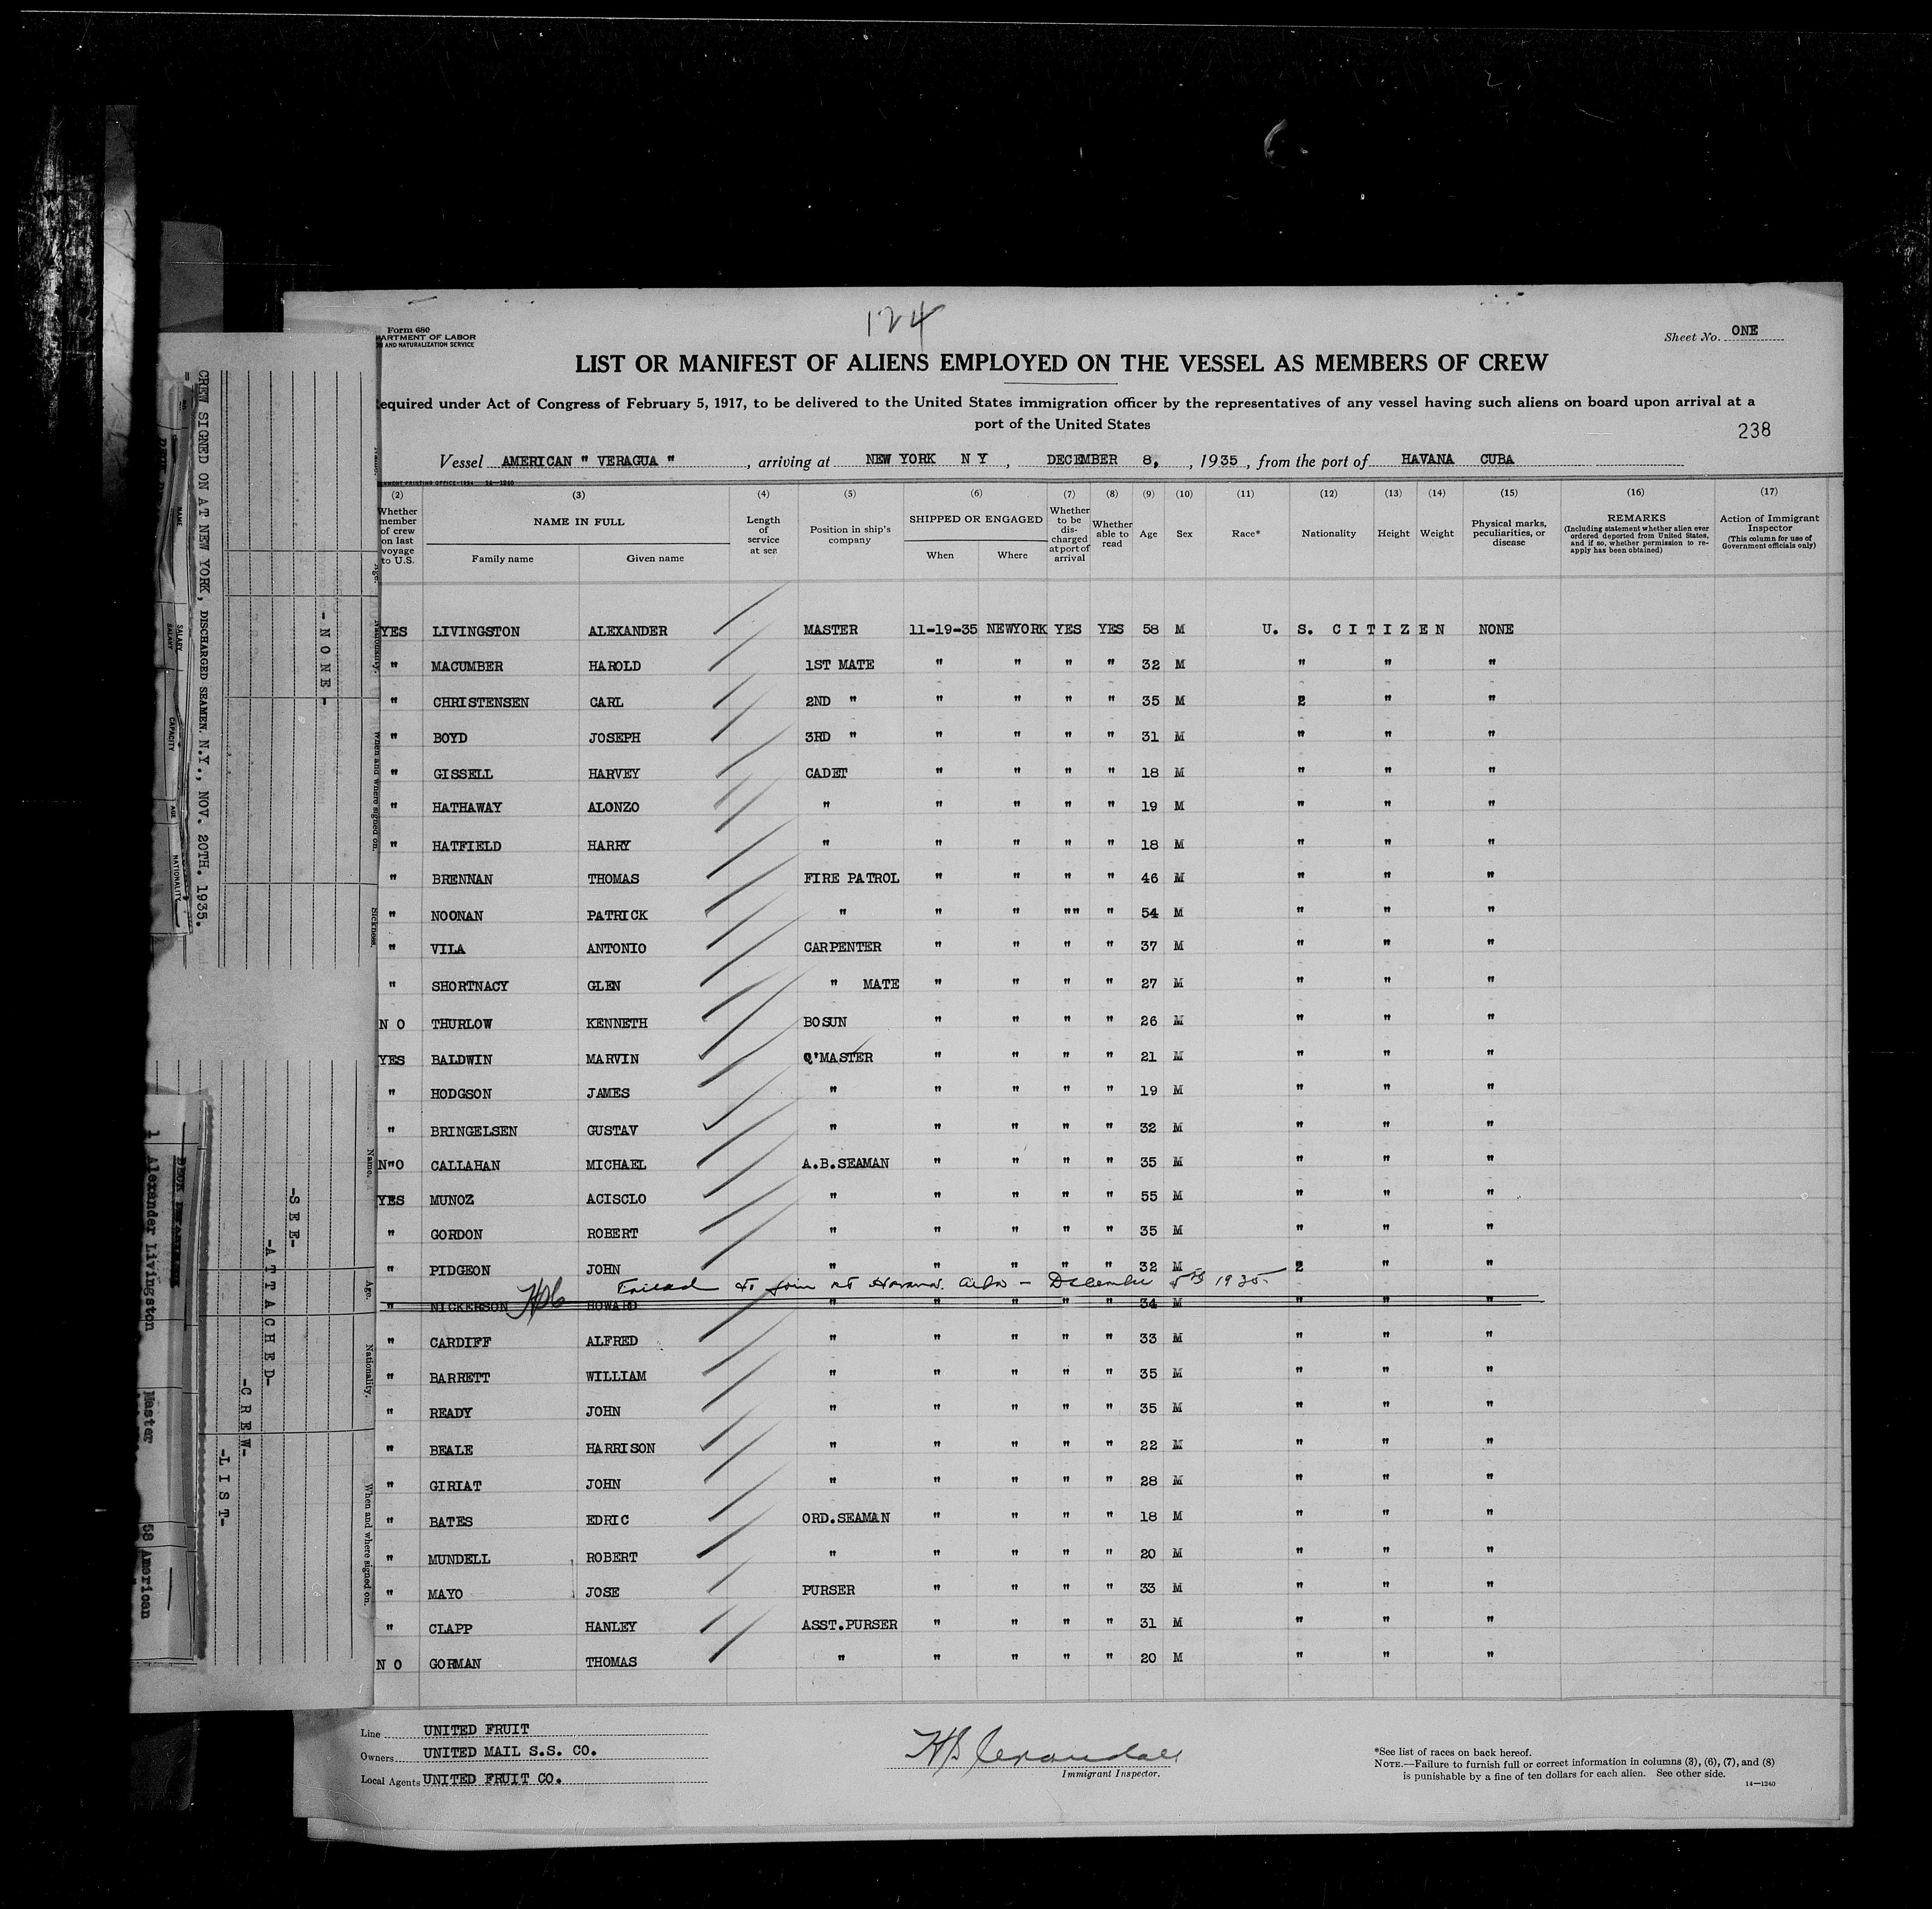 124
Form 680
PARTMENT OF LABOR
N AND NATURALIZATION SERVICE
Sheet No. ONE
LIST OR MANIFEST OF ALIENS EMPLOYED ON THE VESSEL AS MEMBERS OF CREW
equired under Act of Congress of February 5, 1917, to be delivered to the United States immigration officer by the representatives of any vessel having such aliens on board upon arrival at a
port of the United States
238
Vessel AMERICAN " VERAGUA " , arriving at NEW YORK N Y , DECEMBER 8, , 1935 , from the port of HAVANA CUBA
(2) (3) (4) (5) (6) (7) (8) (9) (10) (11) (12) (13) (14) (15) (16) (17)
Whether member of crew on last voyage to U.S. NAME IN FULL Family name Given name Length of service at sea Position in ship's company SHIPPED OR ENGAGED When Where Whether to be discharged at port of arrival Whether able to read Age Sex Race* Nationality Height Weight Physical marks, peculiarities, or disease REMARKS (Including statement whether alien ever ordered deported from United States, and if so, whether permission to re-apply has been obtained) Action of Immigrant Inspector (This column for use of Government officials only)
YES LIVINGSTON ALEXANDER MASTER 11-19-35 NEWYORK YES YES 58 M U. S. C I T I Z E N NONE
" MACUMBER HAROLD 1ST MATE " " " " 32 M " " "
" CHRISTENSEN CARL 2ND " " " " " 35 M 2 " "
" BOYD JOSEPH 3RD " " " " " 31 M " " "
" GISSELL HARVEY CADET " " " " 18 M " " "
" HATHAWAY ALONZO " " " " " 19 M " " "
" HATFIELD HARRY " " " " " 18 M " " "
" BRENNAN THOMAS FIRE PATROL " " " " 46 M " " "
" NOONAN PATRICK " " " "" " 54 M " " "
" VILA ANTONIO CARPENTER " " " " 37 M " " "
" SHORTNACY GLEN " MATE " " " " 27 M " " "
N O THURLOW KENNETH BOSUN " " " " 26 M " " "
YES BALDWIN MARVIN Q'MASTER " " " " 21 M " " "
" HODGSON JAMES " " " " " 19 M " " "
" BRINGELSEN GUSTAV " " " " " 32 M " " "
N"O CALLAHAN MICHAEL A.B.SEAMAN " " " " 35 M " " "
YES MUNOZ ACISCLO " " " " " 55 M " " "
" GORDON ROBERT " " " " " 35 M " " "
" PIDGEON JOHN " " " " " 32 M 2 " "
Failed to join at Havana. Cuba - December 5th 1935.
" NICKERSON HOWARD " " " " " 34 M " " "
" CARDIFF ALFRED " " " " " 33 M " " "
" BARRETT WILLIAM " " " " " 35 M " " "
" READY JOHN " " " " " 35 M " " "
" BEALE HARRISON " " " " " 22 M " " "
" GIRIAT JOHN " " " " " 28 M " " "
" BATES EDRIC ORD.SEAMAN " " " " 18 M " " "
" MUNDELL ROBERT " " " " " 20 M " " "
" MAYO JOSE PURSER " " " " 33 M " " "
" CLAPP HANLEY ASST.PURSER " " " " 31 M " " "
N O GORMAN THOMAS " " " " " 20 M " " "
Line UNITED FRUIT
Owners UNITED MAIL S.S. CO.
Local Agents UNITED FRUIT CO.
Immigrant Inspector.
*See list of races on back hereof.
NOTE.—Failure to furnish full or correct information in columns (3), (6), (7), and (8)
is punishable by a fine of ten dollars for each alien. See other side.
14—1240
CREW SIGNED ON AT NEW YORK, DISCHARGED SEAMEN. N.Y., NOV. 20TH. 1935.
NAME SALARY CAPACITY AGE NATIONALITY
- N O N E -
Age. Nationality. When and where signed on. Sickness.
Name. Age. Nationality. When and where signed on.
-S E E-
-A T T A C H E D-
-C R E W-
-L I S T-
1 Alexander Livingston Master 58 American